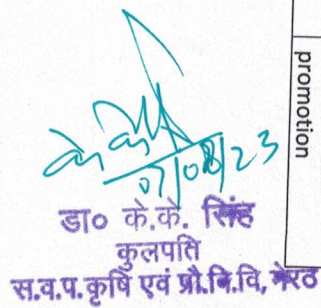 promotion
के के
07/08/23
डा० के.के. सिंह
कुलपति
स.व.प. कृषि एवं प्रौ.वि.वि, मेरठ